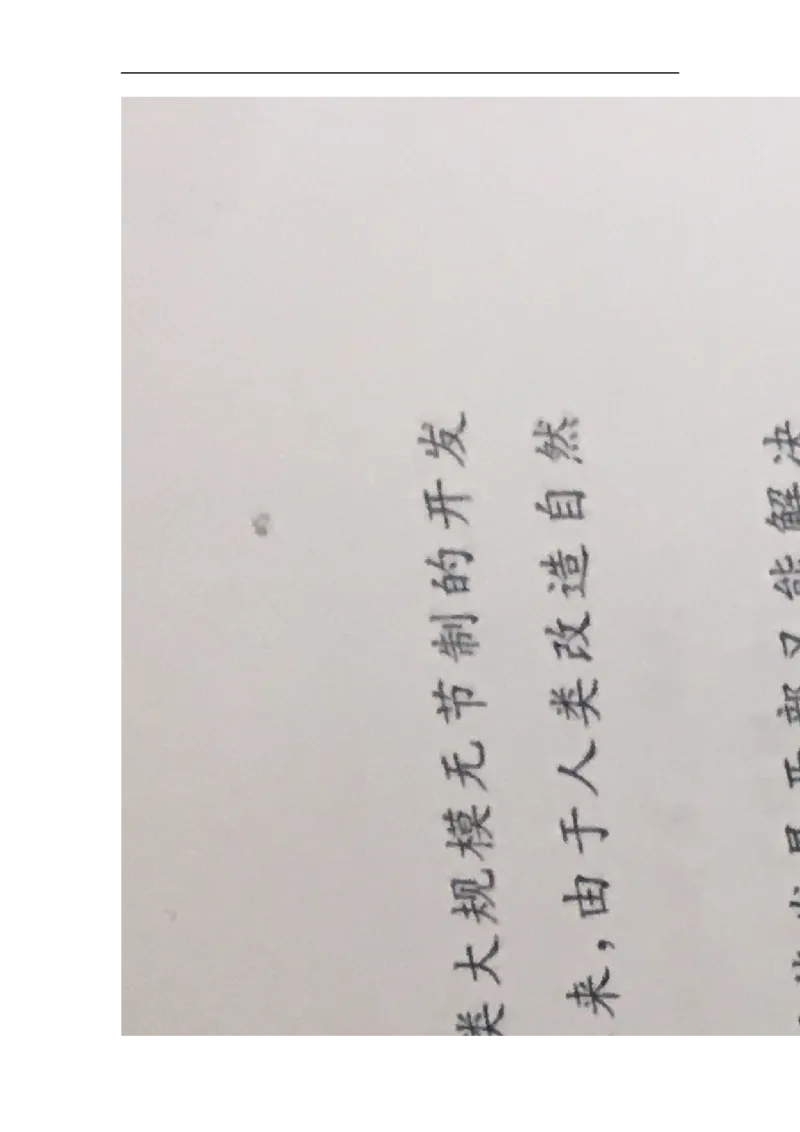 类大规模无节制的开发
来,由于人类改造自然
部又能解决